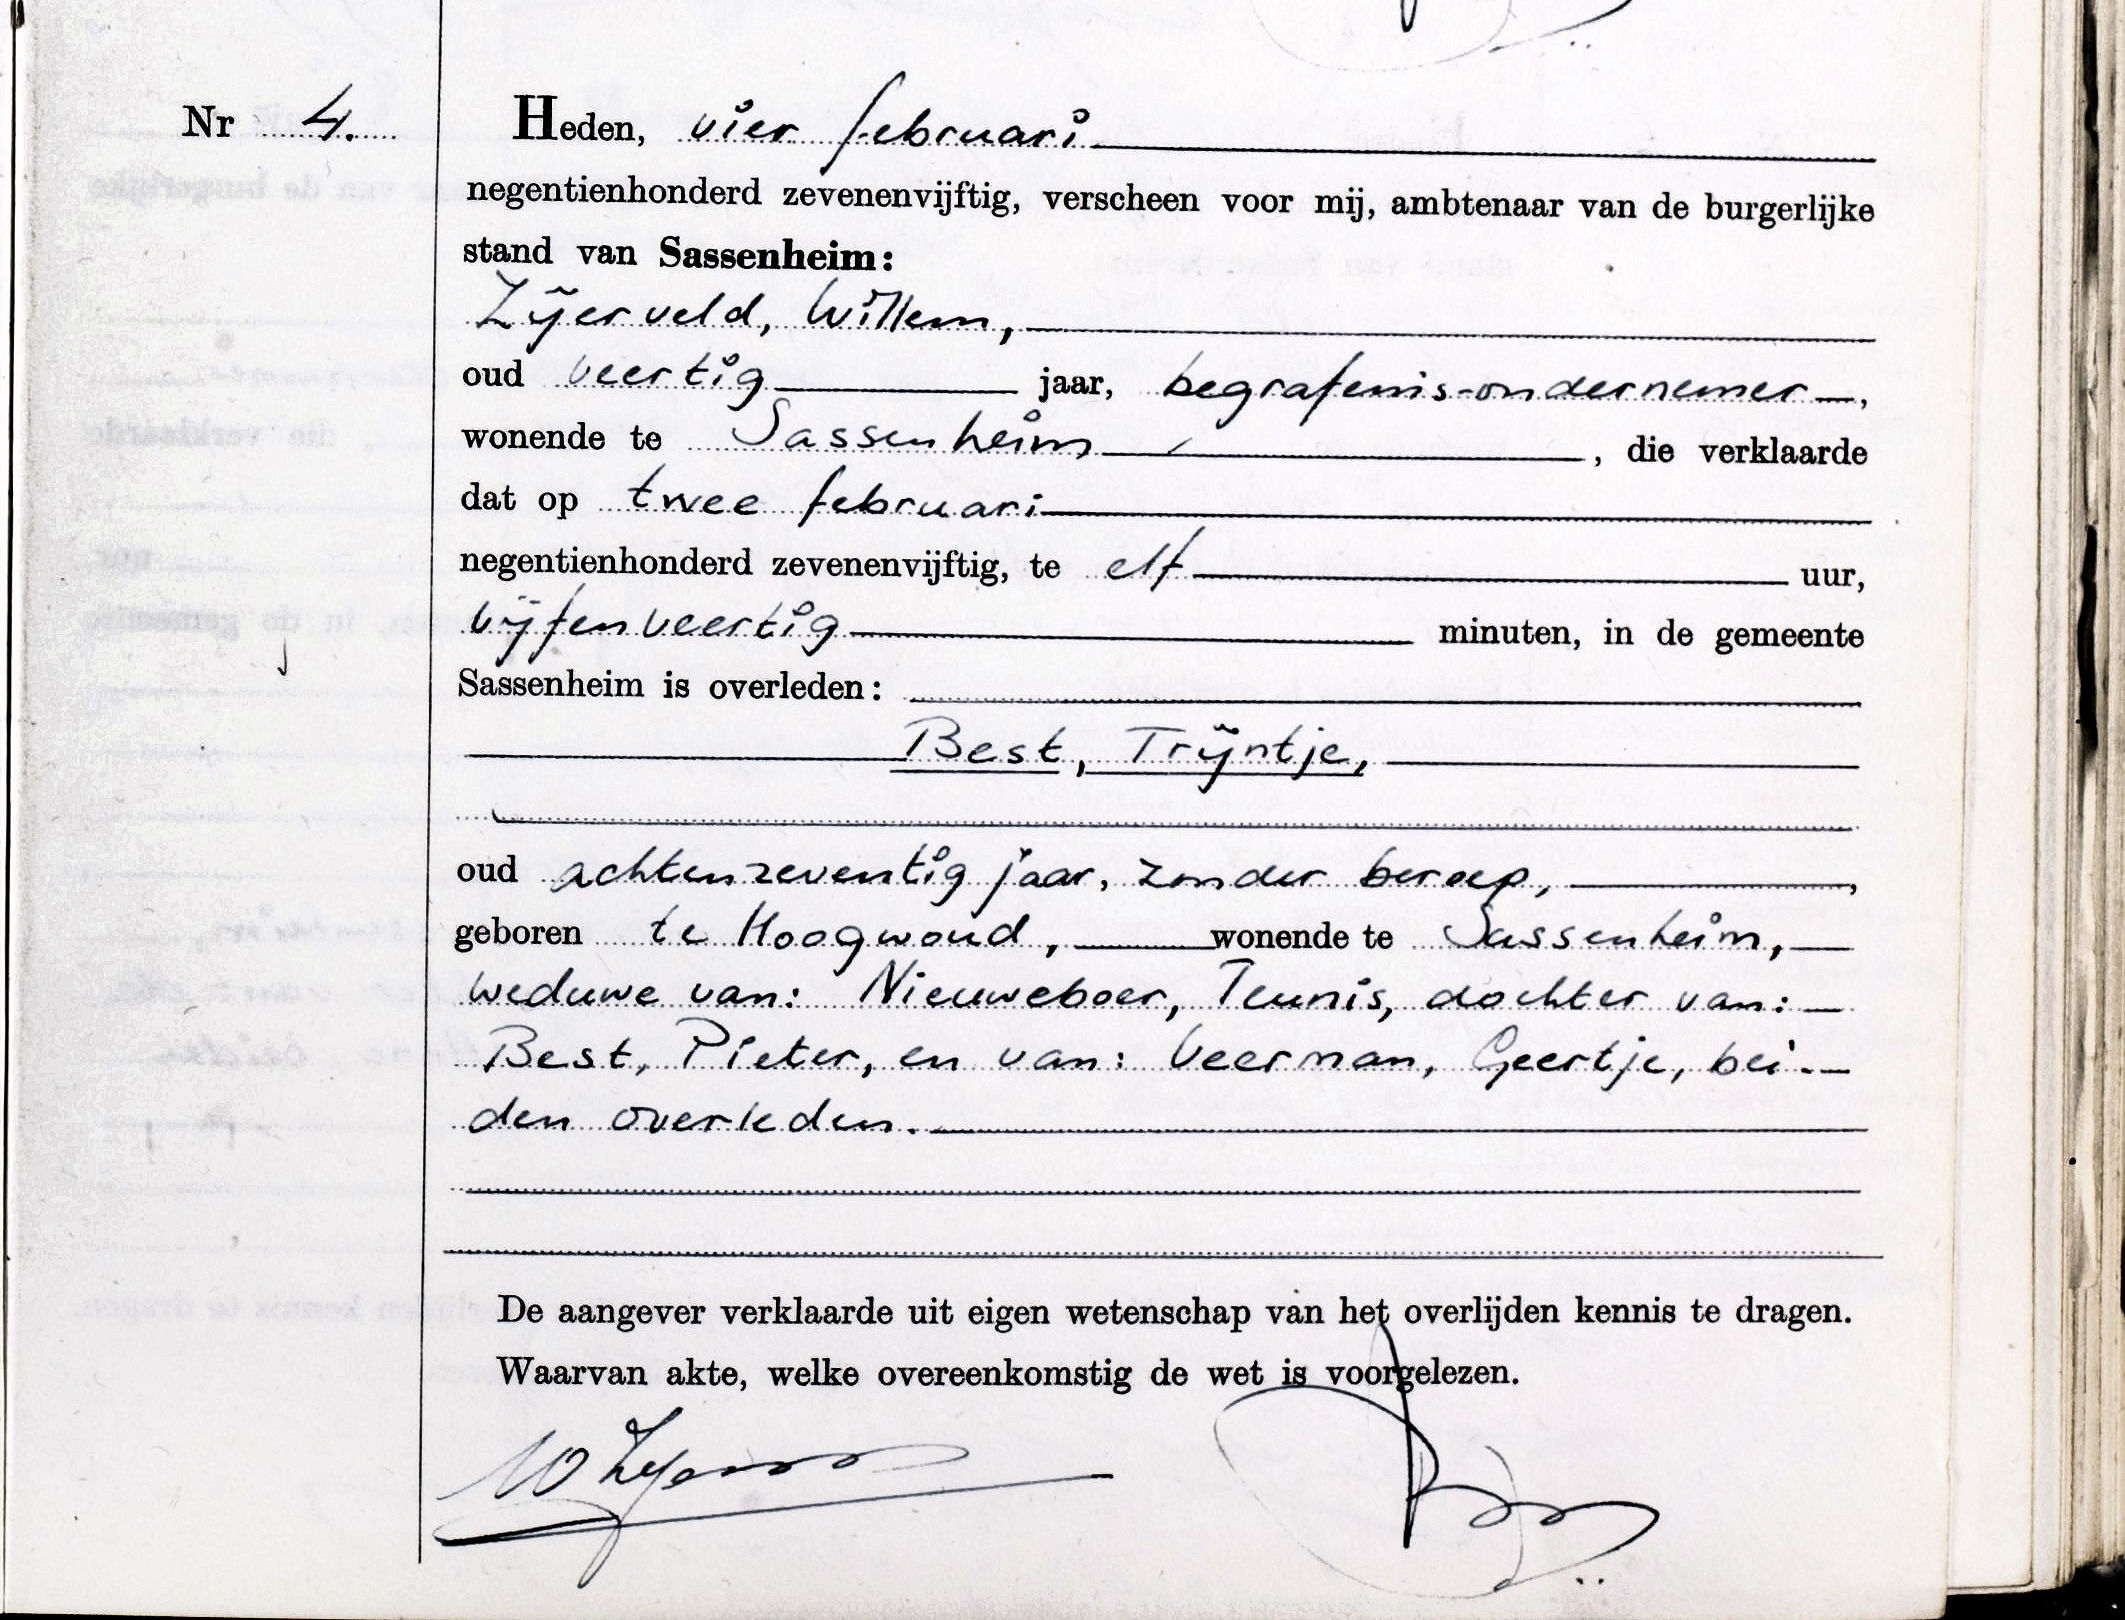 Nr 4.
Heden, vier februari
negentienhonderd zevenenvijftig, verscheen voor mij, ambtenaar van de burgerlijke
stand van Sassenheim:
Zijerveld, Willem,
oud veertig jaar, begrafenis-ondernemer,
wonende te Sassenheim, die verklaarde
dat op twee februari
negentienhonderd zevenenvijftig, te elf uur,
vijfenveertig minuten, in de gemeente
Sassenheim is overleden:
Best, Trijntje,
oud achtenzeventig jaar, zonder beroep,
geboren te Hoogwoud, wonende te Sassenheim,
weduwe van: Nieuweboer, Teunis, dochter van:
Best, Pieter, en van: Veerman, Geertje, bei-
den overleden.
De aangever verklaarde uit eigen wetenschap van het overlijden kennis te dragen.
Waarvan akte, welke overeenkomstig de wet is voorgelezen.